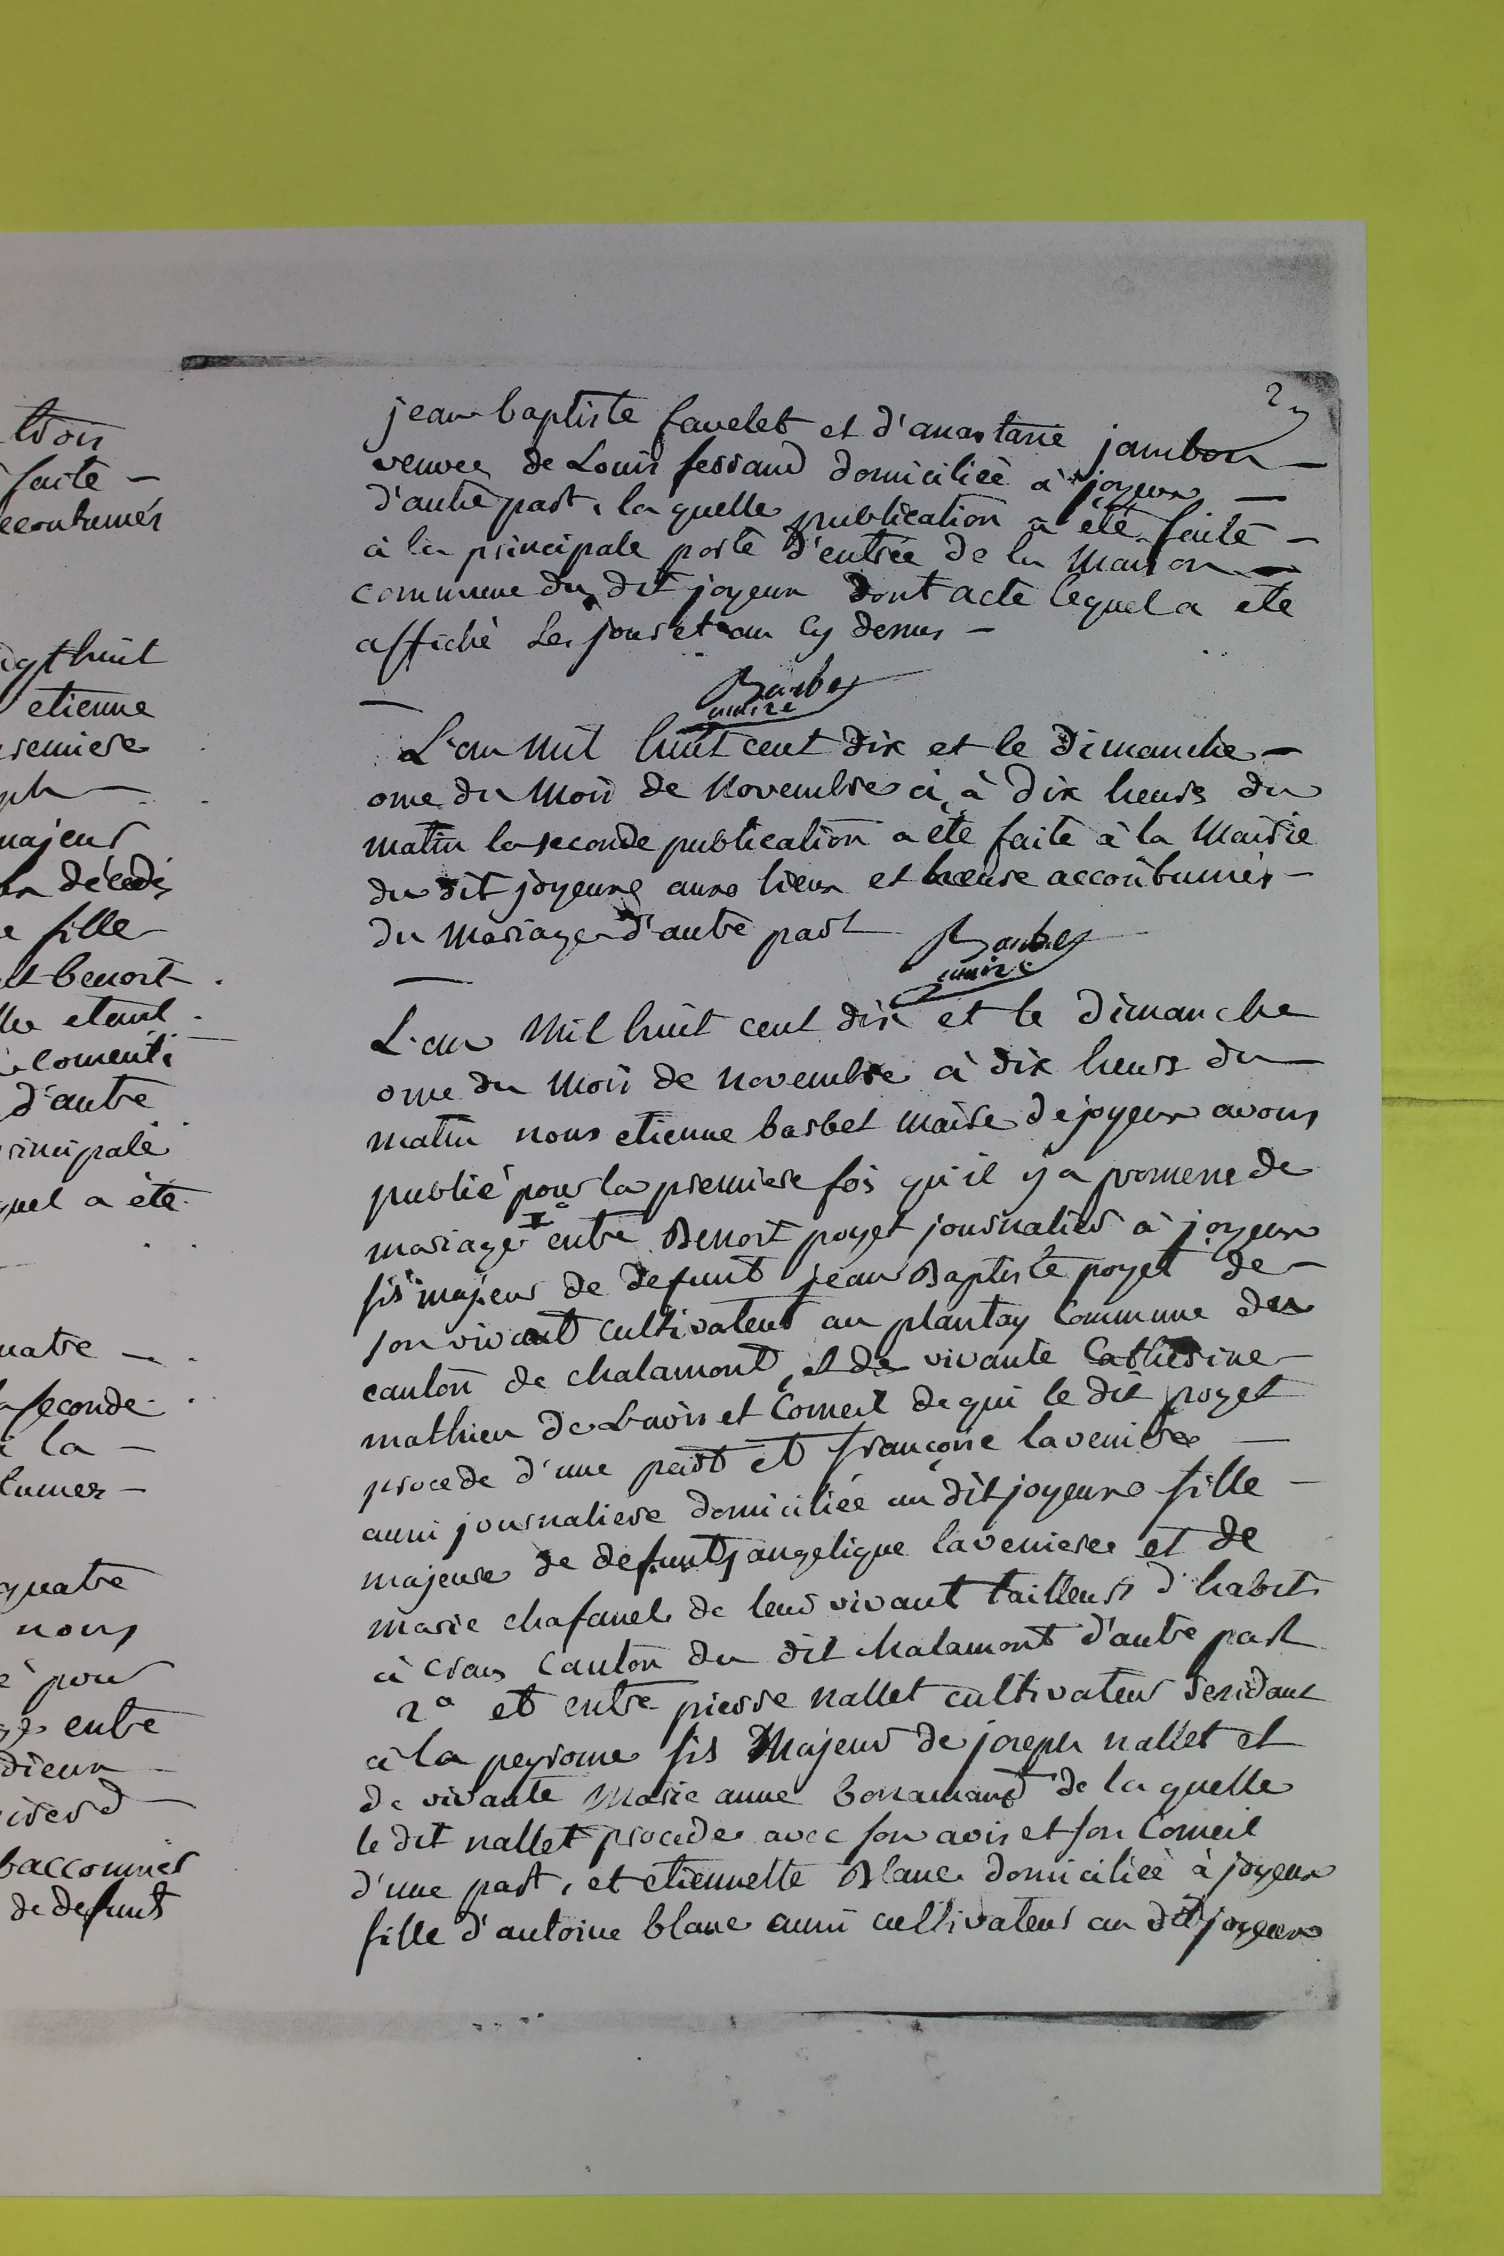 tion
faite -
ccoutumés
igt huit
etienne
remiere
ph -
majeur
décédé
e fille
et benoit
lle etant
conseuti
d'autre
rincipale
quel a été
natre -
seconde
à la -
tumés -
quatre
nous
é pour
entre
dieux -
baccomier
de defunt
2
jean baptiste favelet et d'anastasie jambon -
veuvee de Louis fessaud domiciliée à joyeux -
d'autre part, la quelle publication a été faite -
à la principale porte d'entrée de la Maison -
commune du dit joyeux dont acte lequel a été
affiché Les jour et an cy dessus -
Barbet
maire
L'an Mil huit cent dix et le dimanche -
onze du Mois de Novembre à dix heures du
matin la seconde publication a été faite à la Mairie
du dit joyeux aux lieux et heure accoutumés -
du Mariage d'autre part
Barbet
maire
L'an Mil huit cent dix et le dimanche
onze du Mois de novembre à dix heurs du
matin nous etienne barbet maire de joyeux avons
publié pour la premiere fois qu'il y a promesse de
mariage 1° entre Benoit poyet journalier à joyeux
fils majeur de defunt jean Baptiste poyet de -
son vivant cultivateur au plantay Commune du
canton de chalamont, et de vivante Catherine -
mathieu de L'avis et Conseil de qui le dit poyet
procede d'une part et françoise laveniere -
aussi journaliere domiciliée au dit joyeux fille -
majeure de defunts angelique laveniere et de
marie chafanel de leur vivant tailleurs d'habits
à crans Canton du dit chalamont d'autre part
2° et entre pierre nallet cultivateur residant
à la peyrouse fils Majeur de joseph nallet et
de vivante Marie anne bonamand de la quelle
le dit nallet procede avec son avis et son Conseil
d'une part, et etiennette Blanc domiciliée à joyeux
fille d'antoine blanc aussi cultivateur au dit joyeux